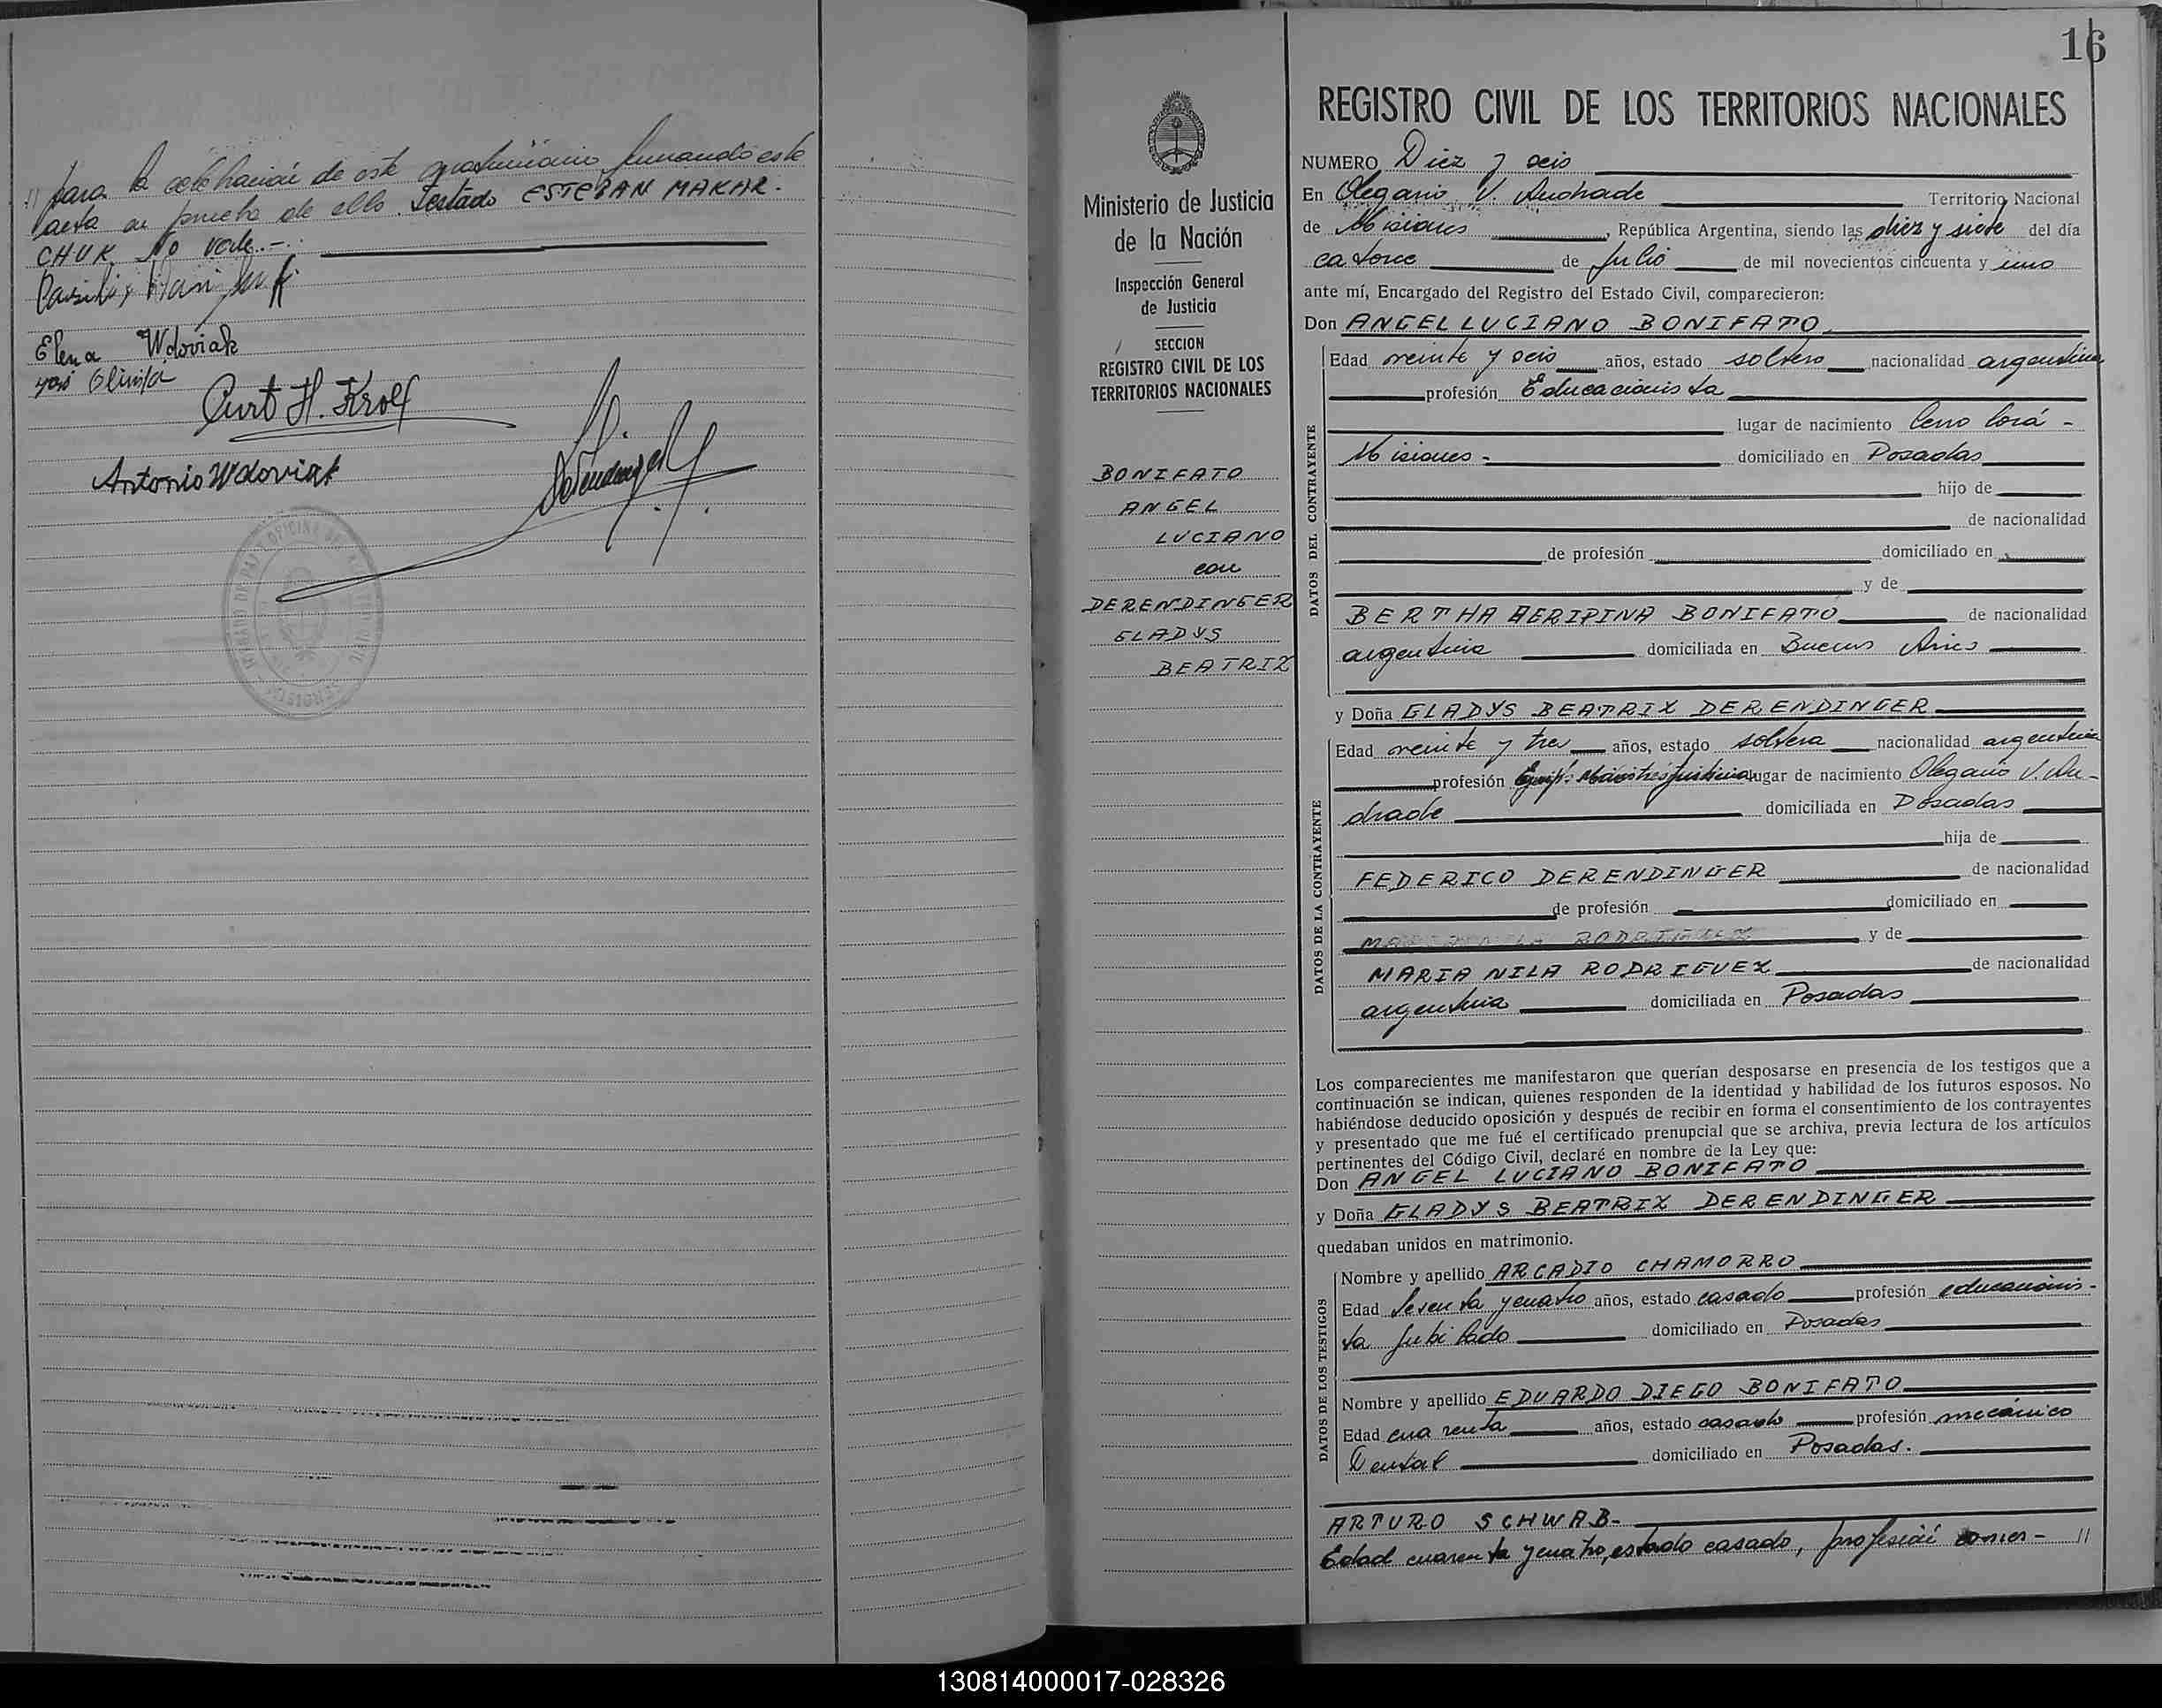 // para la celebración de este matrimonio firmando este
acta en prueba de ello. Testado ESTEBAN MAKAR-
CHUK No vale.-
Elena Wdoviak
José Olinifa
Curt H. Krolf
Antonio Wdoviak
16
Ministerio de Justicia
de la Nación
Inspección General
de Justicia
SECCION
REGISTRO CIVIL DE LOS
TERRITORIOS NACIONALES
BONIFATO
ANGEL
LUCIANO
con
DERENDINGER
GLADYS
BEATRIZ
REGISTRO CIVIL DE LOS TERRITORIOS NACIONALES
NUMERO Diez y seis
En Olegario V. Andrade Territorio Nacional
de Misiones, República Argentina, siendo las diez y siete del día
catorce de Julio de mil novecientos cincuenta y uno
ante mí, Encargado del Registro del Estado Civil, comparecieron:
Don ANGEL LUCIANO BONIFATO,
DATOS DEL CONTRAYENTE
Edad veinte y seis años, estado soltero nacionalidad argentina
profesión Educacionista
lugar de nacimiento Cerro Corá -
Misiones - domiciliado en Posadas
hijo de
de nacionalidad
de profesión domiciliado en
y de
BERTHA AGRIPINA BONIFATO de nacionalidad
argentina domiciliada en Buenos Aires
y Doña GLADYS BEATRIZ DERENDINGER
DATOS DE LA CONTRAYENTE
Edad veinte y tres años, estado soltera nacionalidad argentina
profesión lugar de nacimiento Olegario V. An-
drade domiciliada en Posadas
hija de
FEDERICO DERENDINGER de nacionalidad
de profesión domiciliado en
y de
MARIA NILA RODRIGUEZ de nacionalidad
argentina domiciliada en Posadas
Los comparecientes me manifestaron que querían desposarse en presencia de los testigos que a
continuación se indican, quienes responden de la identidad y habilidad de los futuros esposos. No
habiéndose deducido oposición y después de recibir en forma el consentimiento de los contrayentes
y presentado que me fué el certificado prenupcial que se archiva, previa lectura de los artículos
pertinentes del Código Civil, declaré en nombre de la Ley que:
Don ANGEL LUCIANO BONIFATO
y Doña GLADYS BEATRIZ DERENDINGER
quedaban unidos en matrimonio.
DATOS DE LOS TESTIGOS
Nombre y apellido ARCADIO CHAMORRO
Edad sesenta y cuatro años, estado casado profesión educacionis-
ta jubilado domiciliado en Posadas
Nombre y apellido EDUARDO DIEGO BONIFATO
Edad cuarenta años, estado casado profesión mecánico
Dental domiciliado en Posadas.
ARTURO SCHWAB-
Edad cuarenta y cuatro, estado casado, profesión comer- //
130814000017-028326